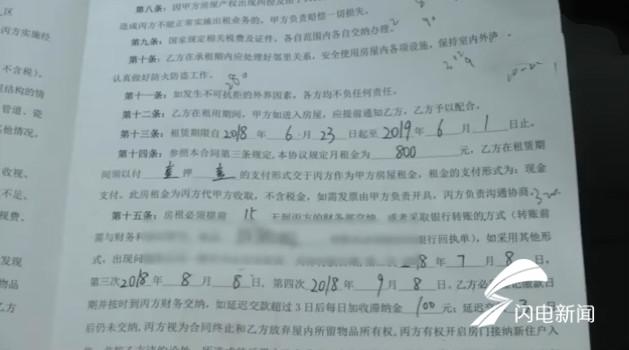 第八条：因甲方房屋产权出现纠纷及由于
造成丙方不能正常实施出租业务的，甲方负责赔偿一切损失。
第九条：国家规定相关税费及证件，各自范围内各自交纳办理。
第十条：乙方在承租期内应处理好邻里关系，安全使用房屋内各项设施，保持室内外
认真做好防火防盗工作。
第十一条：如发生不可抗拒的外界因素，各方均不负任何责任。
第十二条：乙方在租用期间，甲方如进入房屋，应提前通知乙方，乙方予以配合。
第十三条：租赁期限自2018年6月23日起至2019年6月1日止。
第十四条：参照本合同第三条规定，本协议规定月租金为800元，乙方在租赁期
间须以付壹押壹的支付形式交于丙方作为甲方房屋租金，租金的支付形式为：现金
支付。此房租金为丙方代甲方收取，不含税金，如需发票由甲方负责开具，丙方负责沟通协商。
第十五条：房租必须提前15天到丙方的财务部交纳，或者采取银行转账的方式（转账前
需与财务
银行回执单），如采用其他形
式，出现问
年7月8日，
第三次2018年8月8日，第四次2018年9月8日，乙方必
缴款日
期并按时到丙方财务交纳，如延迟交款超过3日后每日加收滞纳金100元；延迟
后仍未交纳，丙方视为合同终止和乙方放弃屋内所留物品所有权，丙方有权开启房门接纳新住户入
区
丙方实施经
不含税）。
层结构的情
管道、瓷
其他情况。
收视、
不足、
视费、
发现
物品
闪电新闻